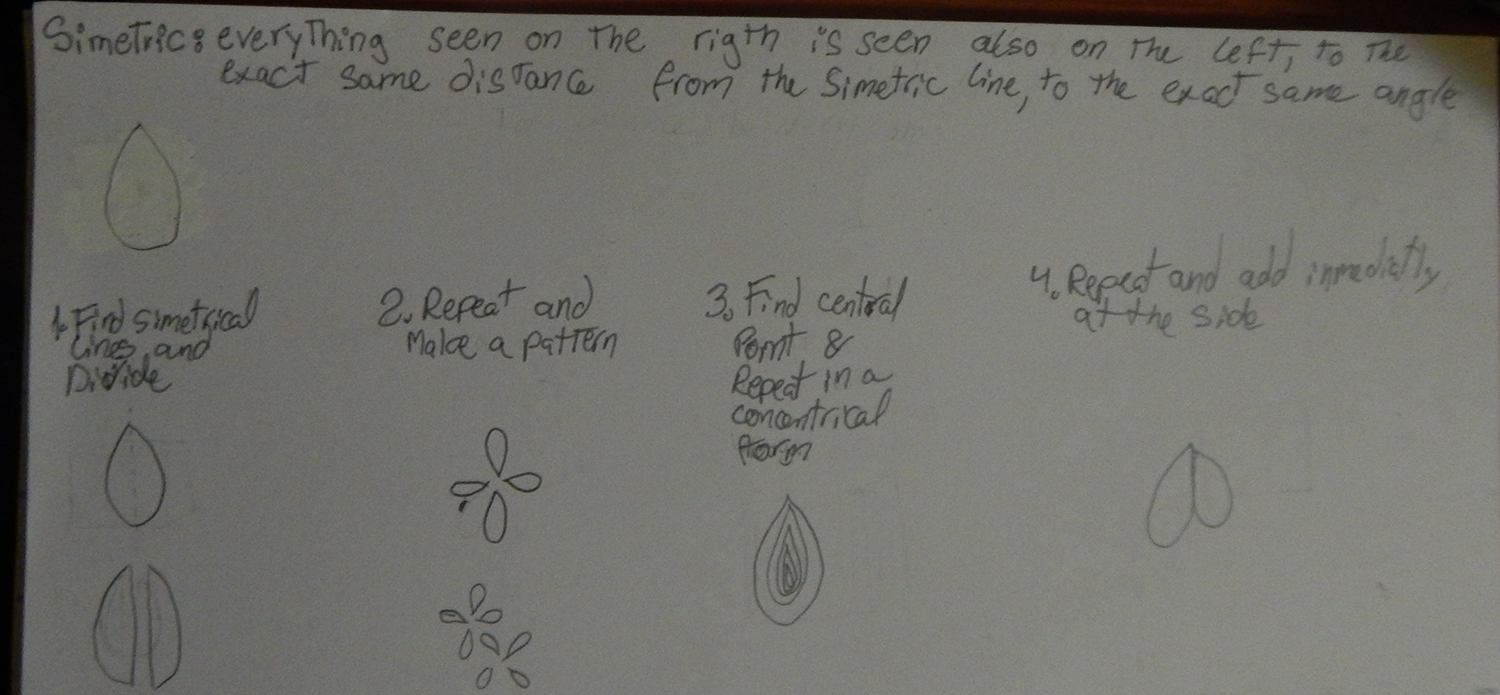 Simetric: everything seen on the rigth is seen also on the left, to the
exact same distance from the simetric line, to the exact same angle
1. Find simetrical
lines and
Divide
2. Repeat and
Make a pattern
3. Find central
Point &
Repeat in a
concentrical
form
4. Repeat and add inmediatly
at the side